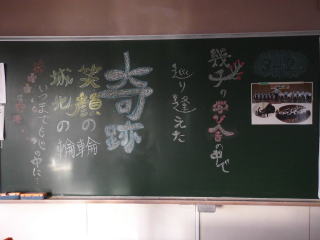 幾千の出会の中で
巡り逢えた
奇跡
笑顔の輪
城北の輪
いつまでも心の中に…